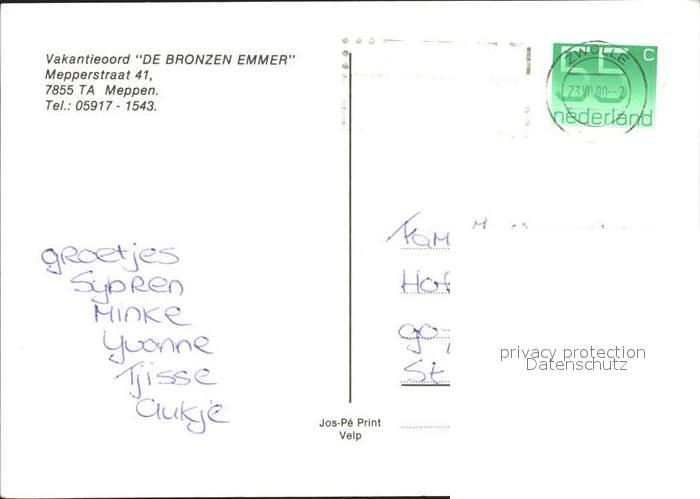 Vakantieoord "DE BRONZEN EMMER"
Mepperstraat 41,
7855 TA Meppen.
Tel.: 05917 - 1543.
55 C
nederland
ZWOLLE
groetjes
Sybren
Minke
Yvonne
Tjisse
Aukje
Fam
Hof
St
privacy protection
Datenschutz
Jos-Pé Print
Velp